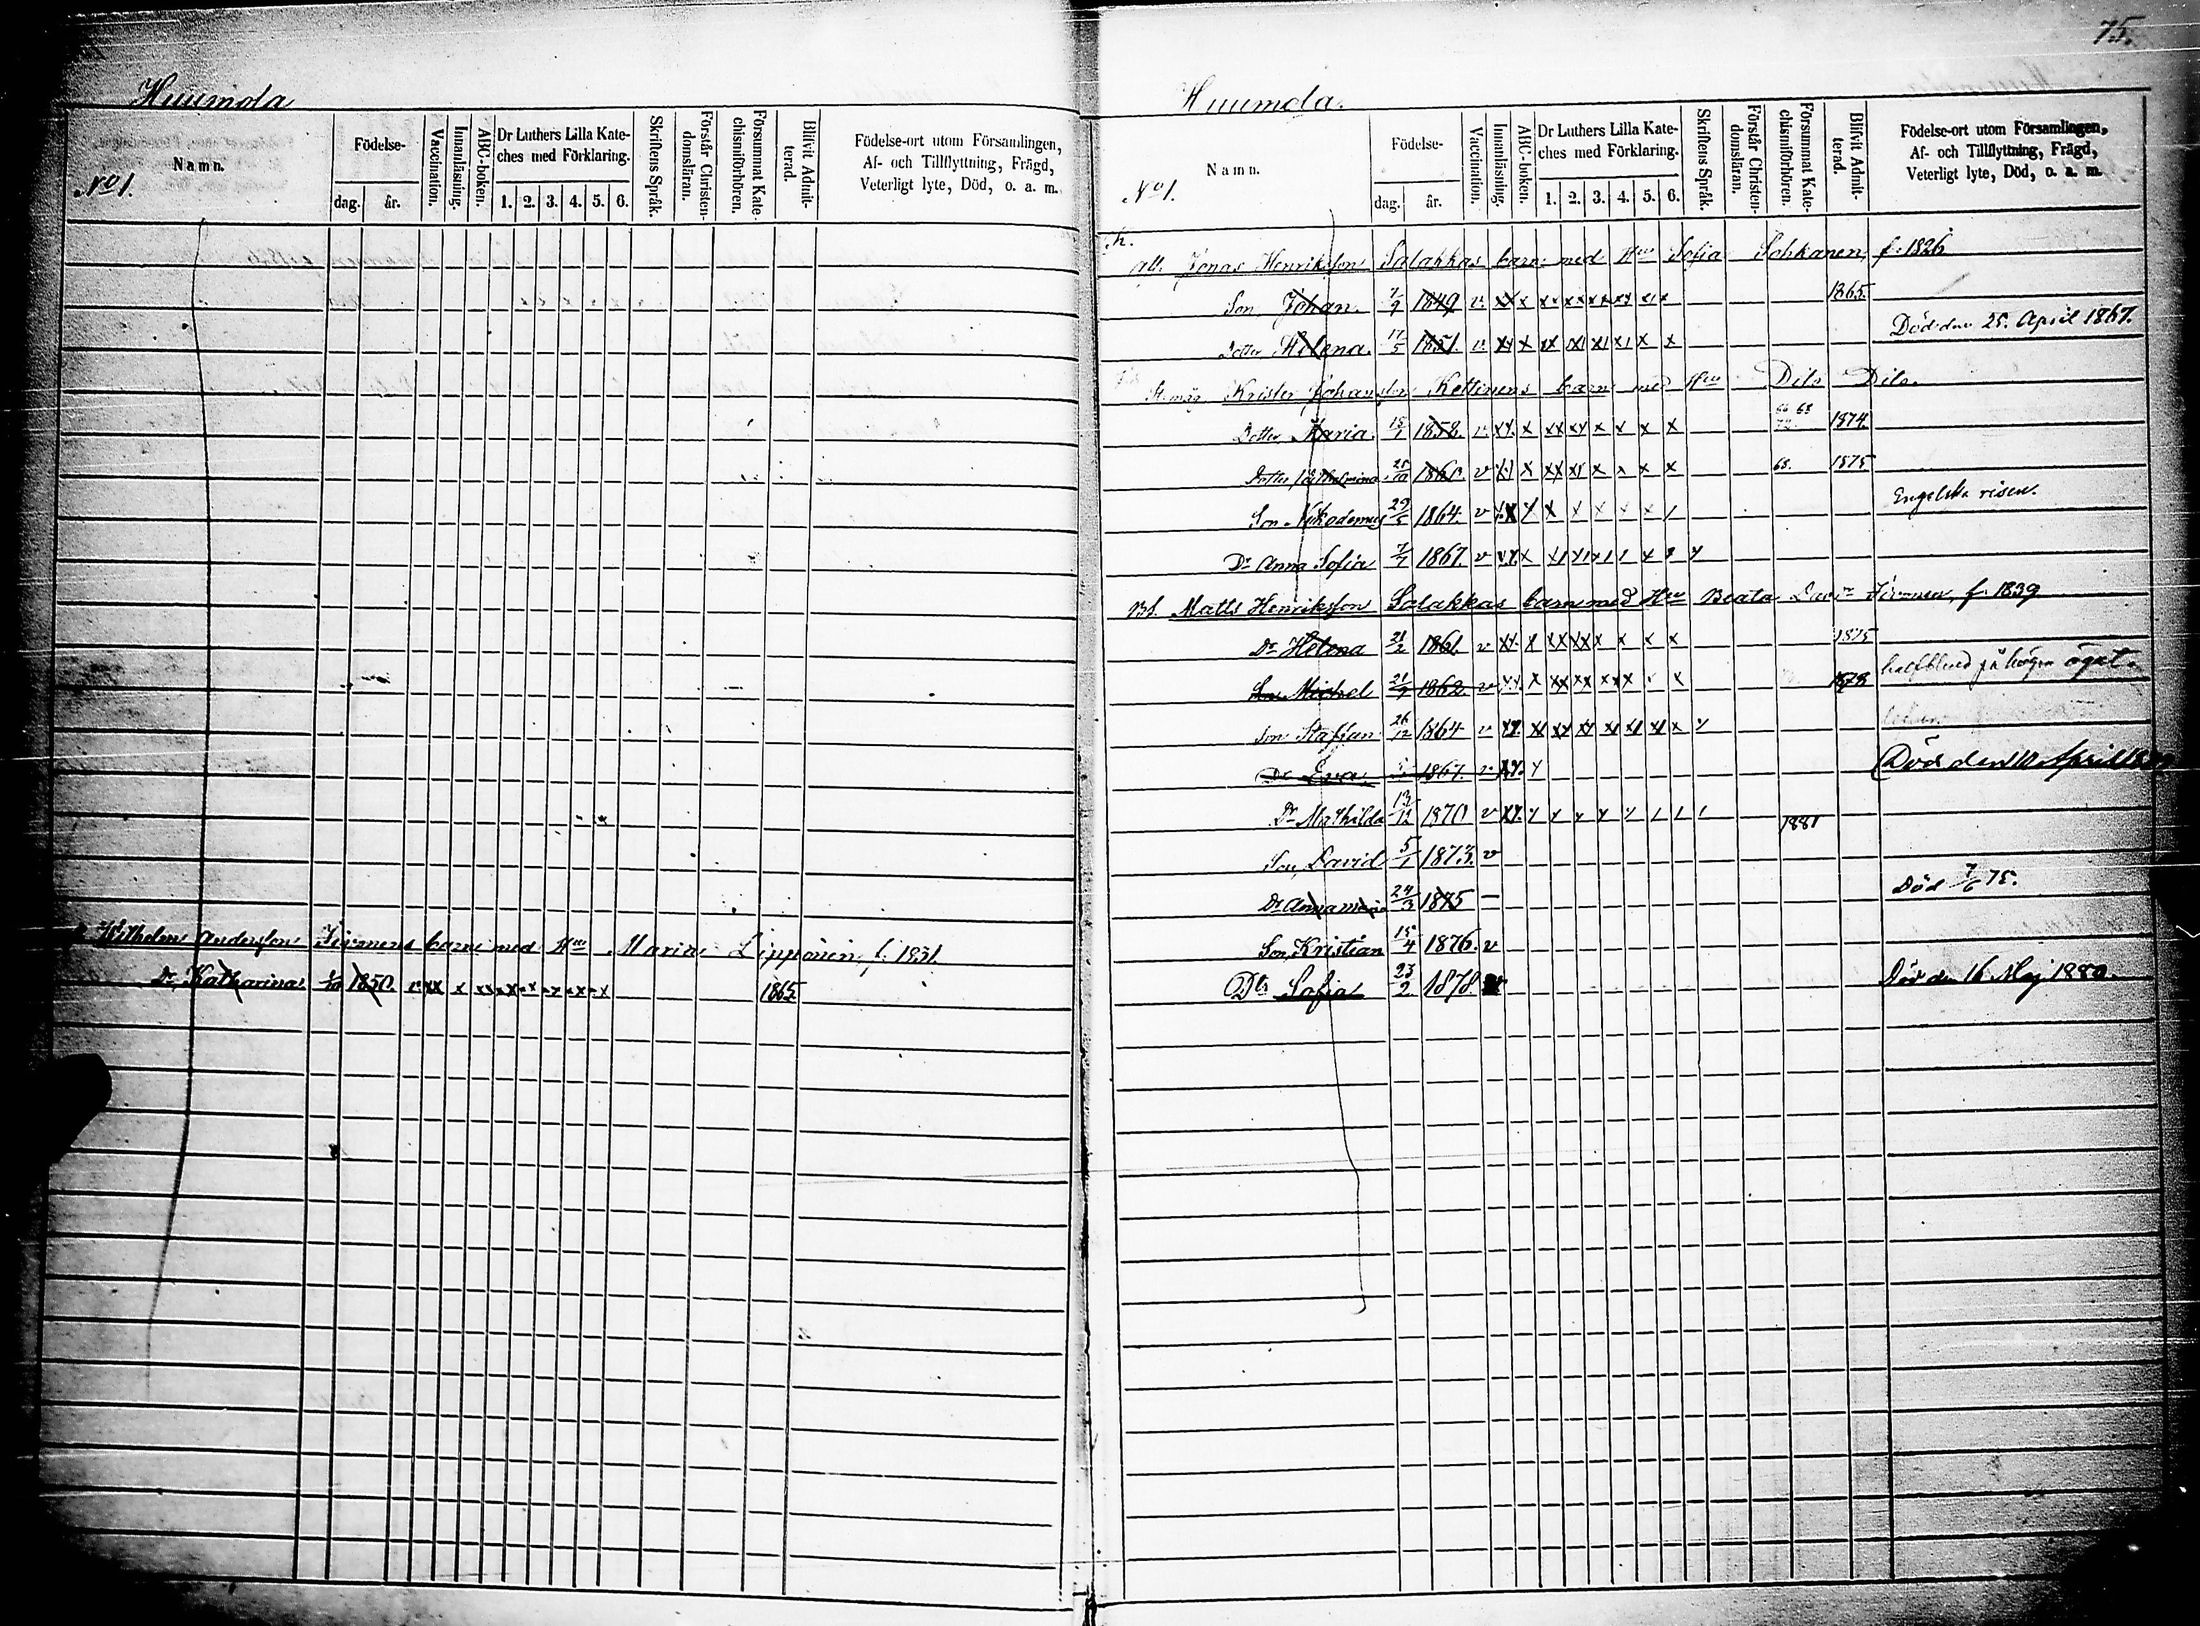 75.
Huumola
No 1.
Namn.
Födelse-
dag. år.
Vaccination.
Innanläsning.
ABC-boken.
Dr Luthers Lilla Kate-
ches med Förklaring.
1. 2. 3. 4. 5. 6.
Skriftens Språk.
Förstår Christen-
domsläran.
Försummat Kate-
chismiförhören.
Blifvit Admit-
terad.
Födelse-ort utom Församlingen,
Af- och Tillflyttning, Frägd,
Veterligt lyte, Död, o. a. m.
Wilhelm Andersson Tirronens barn med Hu Maria Lipponen f. 1831.
Dr Katharina 1850 1865
Huumola.
No 1.
Namn.
Födelse-
dag. år.
Vaccination.
Innanläsning.
ABC-boken.
Dr Luthers Lilla Kate-
ches med Förklaring.
1. 2. 3. 4. 5. 6.
Skriftens Språk.
Förstår Christen-
domsläran.
Försummat Kate-
chismiförhören.
Blifvit Admit-
terad.
Födelse-ort utom Församlingen,
Af- och Tillflyttning, Frägd,
Veterligt lyte, Död, o. a. m.
Jonas Henriksson Salakkas barn med Hu Sofia Sohkanen, f. 1826
Son Johan. 7/9 1849 v. 1865.
Dotter Helena. 17/5 1851. v. Död den 25. April 1867.
Krister Johansson Kettinens barn med Hu Dito Dito.
Dotter Maria. 15/1 1858. v. 66 68 72 1874.
Dotter Wilhelmina 1860. v 68. 1875
Son Nikodemus 29/5 1864. v Engelska risen.
Dr Anna Sofia 7/7 1867. v
Bd. Matts Henriksson Salakkas barn med Hu Beata Tirronen, f. 1839
Dr Helena 21/2 1861. v 1875
Son Michel 1862 v 1878 halfblind på högra ögat.
Son Staffan 26/12 1864 v
Dr Eva 1867. v Död den 10 April
Dr Mathilda 13/12 1870 v 1881
Son David 5/1 1873. v
Dr Anna Maria 24/3 1875 — Död 7/6 75.
Son, Kristian 15/4 1876. v
Dr Sofia 23/2 1878. Död den 16 Maj 1880.